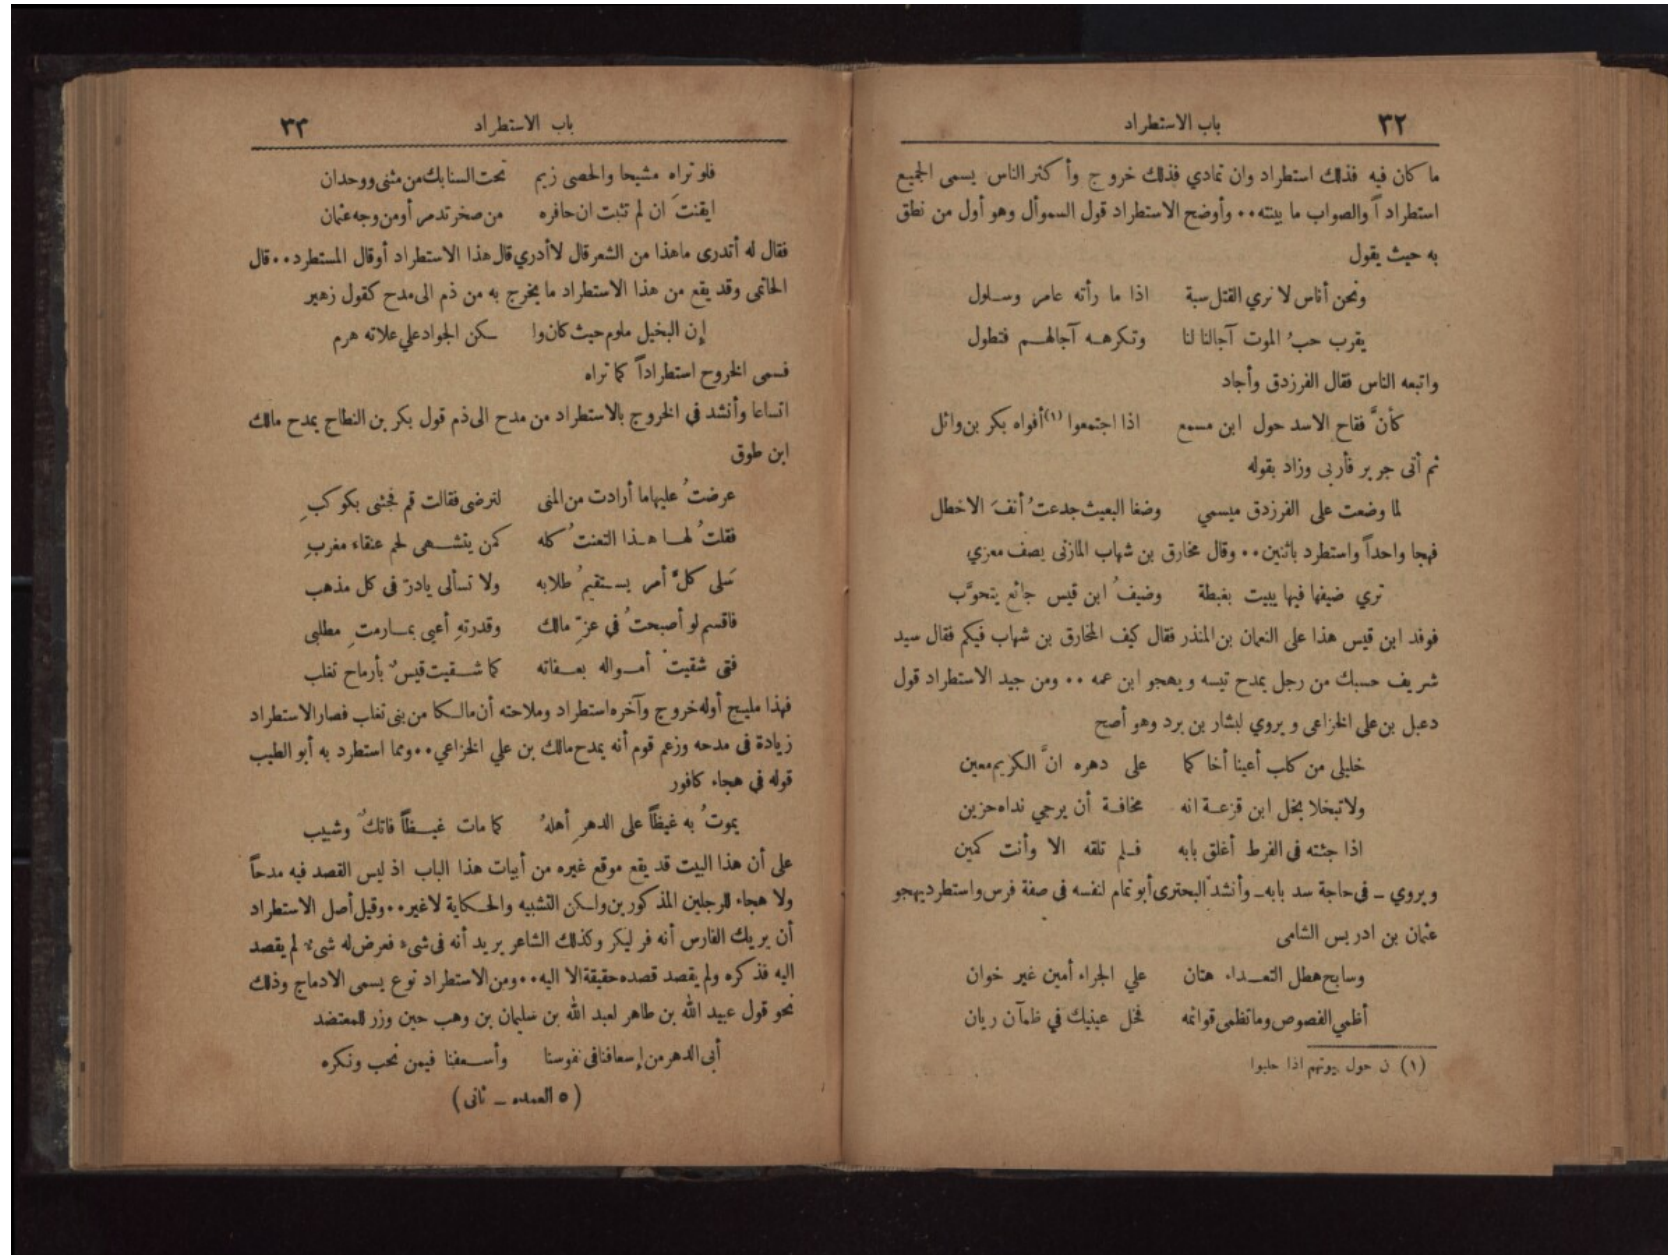 ٣٢ باب الاستطراد
ما كان فيه فذلك استطراد وان تمادي فذلك خروج وأكثر الناس يسمى الجميع
استطراداً والصواب ما بينته ٠٠ وأوضح الاستطراد قول السموأل وهو أول من نطق
به حيث يقول
ونحن أناس لا نري القتل سبة اذا ما رأته عامر وسلول
يقرب حبُ الموت آجالنا لنا وتكرهه آجالهم فتطول
واتبعه الناس فقال الفرزدق وأجاد
كأنَّ فقاح الاسد حول ابن مسمع اذا اجتمعوا (١) أفواه بكر بن وائل
ثم أتى جرير فأربى وزاد بقوله
لما وضعت على الفرزدق ميسمي وضغا البعيث جدعتُ أنفَ الاخطل
فهجا واحداً واستطرد باثنين ٠٠ وقال مخارق بن شهاب المازنى يصف معزي
تري ضيفها فيها يبيت بغبطة وضيفُ ابن قيس جائع يتحوَّب
فوفد ابن قيس هذا على النعمان بن المنذر فقال كيف المخارق بن شهاب فيكم فقال سيد
شريف حسبك من رجل يمدح تيسه ويهجو ابن عمه ٠٠ ومن جيد الاستطراد قول
دعبل بن على الخزاعى ويروي لبشار بن برد وهو أصح
خليلى من كاب أعينا أخا كما على دهره انَّ الكريم معين
ولا تبخلا بخل ابن قزعة انه مخافة أن يرجي نداه حزين
اذا جئته فى الفرط أغلق بابه فلم تلقه الا وأنت كمين
ويروي ـ فى حاجة سد بابه ـ وأنشد البحترى أبو تمام لنفسه فى صفة فرس واستطرد يهجو
عثمان بن ادريس الشامى
وسابح هطل التعداء هتان علي الجراء أمين غير خوان
أظمي الفصوص وما تظمى قوائمه فخل عينيك في ظمآن ريان
(١) ن حول بيوتهم اذا جلبوا
باب الاستطراد ٣٣
فلو تراه مشيحا والحصى زيم تحت السنابك من مثنى ووحدان
ايقنتَ ان لم تثبت ان حافره من صخر تدمر أومن وجه عثمان
فقال له أتدرى ماهذا من الشعر قال لاأدري قال هذا الاستطراد أوقال المستطرد ٠٠ قال
الحاتمى وقد يقع من هذا الاستطراد ما يخرج به من ذم الى مدح كقول زهير
إن البخيل ملوم حيث كان وا ـكن الجواد علي علاته هرم
فسمى الخروج استطراداً كما تراه
اتساعا وأنشد في الخروج بالاستطراد من مدح الى ذم قول بكر بن النطاح يمدح مالك
ابن طوق
عرضتُ عليها ما أرادت من المنى لترضى فقالت قم فجئنى بكوكبِ
فقلتُ لها هذا التعنتُ كله كمن يتشهى لحم عنقاء مغربِ
سَلى كلَّ أمر يستقيمُ طلابه ولا تسألى يادرّ فى كل مذهب
فاقسم لو أصبحتُ في عزِّ مالك وقدرتهِ أعيى بما رمتِ مطلبى
فتى شقيت أمواله بعفاته كما شقيت قيسٌ بأرماح تغلب
فهذا مليح أوله خروج وآخره استطراد وملاحته أن مالكا من بنى تغلب فصار الاستطراد
زيادة فى مدحه وزعم قوم أنه يمدح مالك بن علي الخزاعي ٠٠ ومما استطرد به أبو الطيب
قوله في هجاء كافور
يموتُ به غيظاً على الدهرِ أهلهُ كما مات غيظاً فاتكٌ وشبيب
على أن هذا البيت قد يقع موقع غيره من أبيات هذا الباب اذ ليس القصد فيه مدحاً
ولا هجاء للرجلين المذكورين ولكن التشبيه والحكاية لاغير ٠٠ وقيل أصل الاستطراد
أن يريك الفارس أنه فر ليكر وكذلك الشاعر يريد أنه فى شىء فعرض له شىء لم يقصد
اليه فذكره ولم يقصد قصده حقيقة الا اليه ٠٠ ومن الاستطراد نوع يسمى الادماج وذلك
نحو قول عبيد الله بن طاهر لعبد الله بن سليمان بن وهب حين وزر للمعتضد
أبى الدهر من إسعافنا فى نفوسنا وأسعفنا فيمن نحب ونكره
(٥ العمده ـ ثانى)